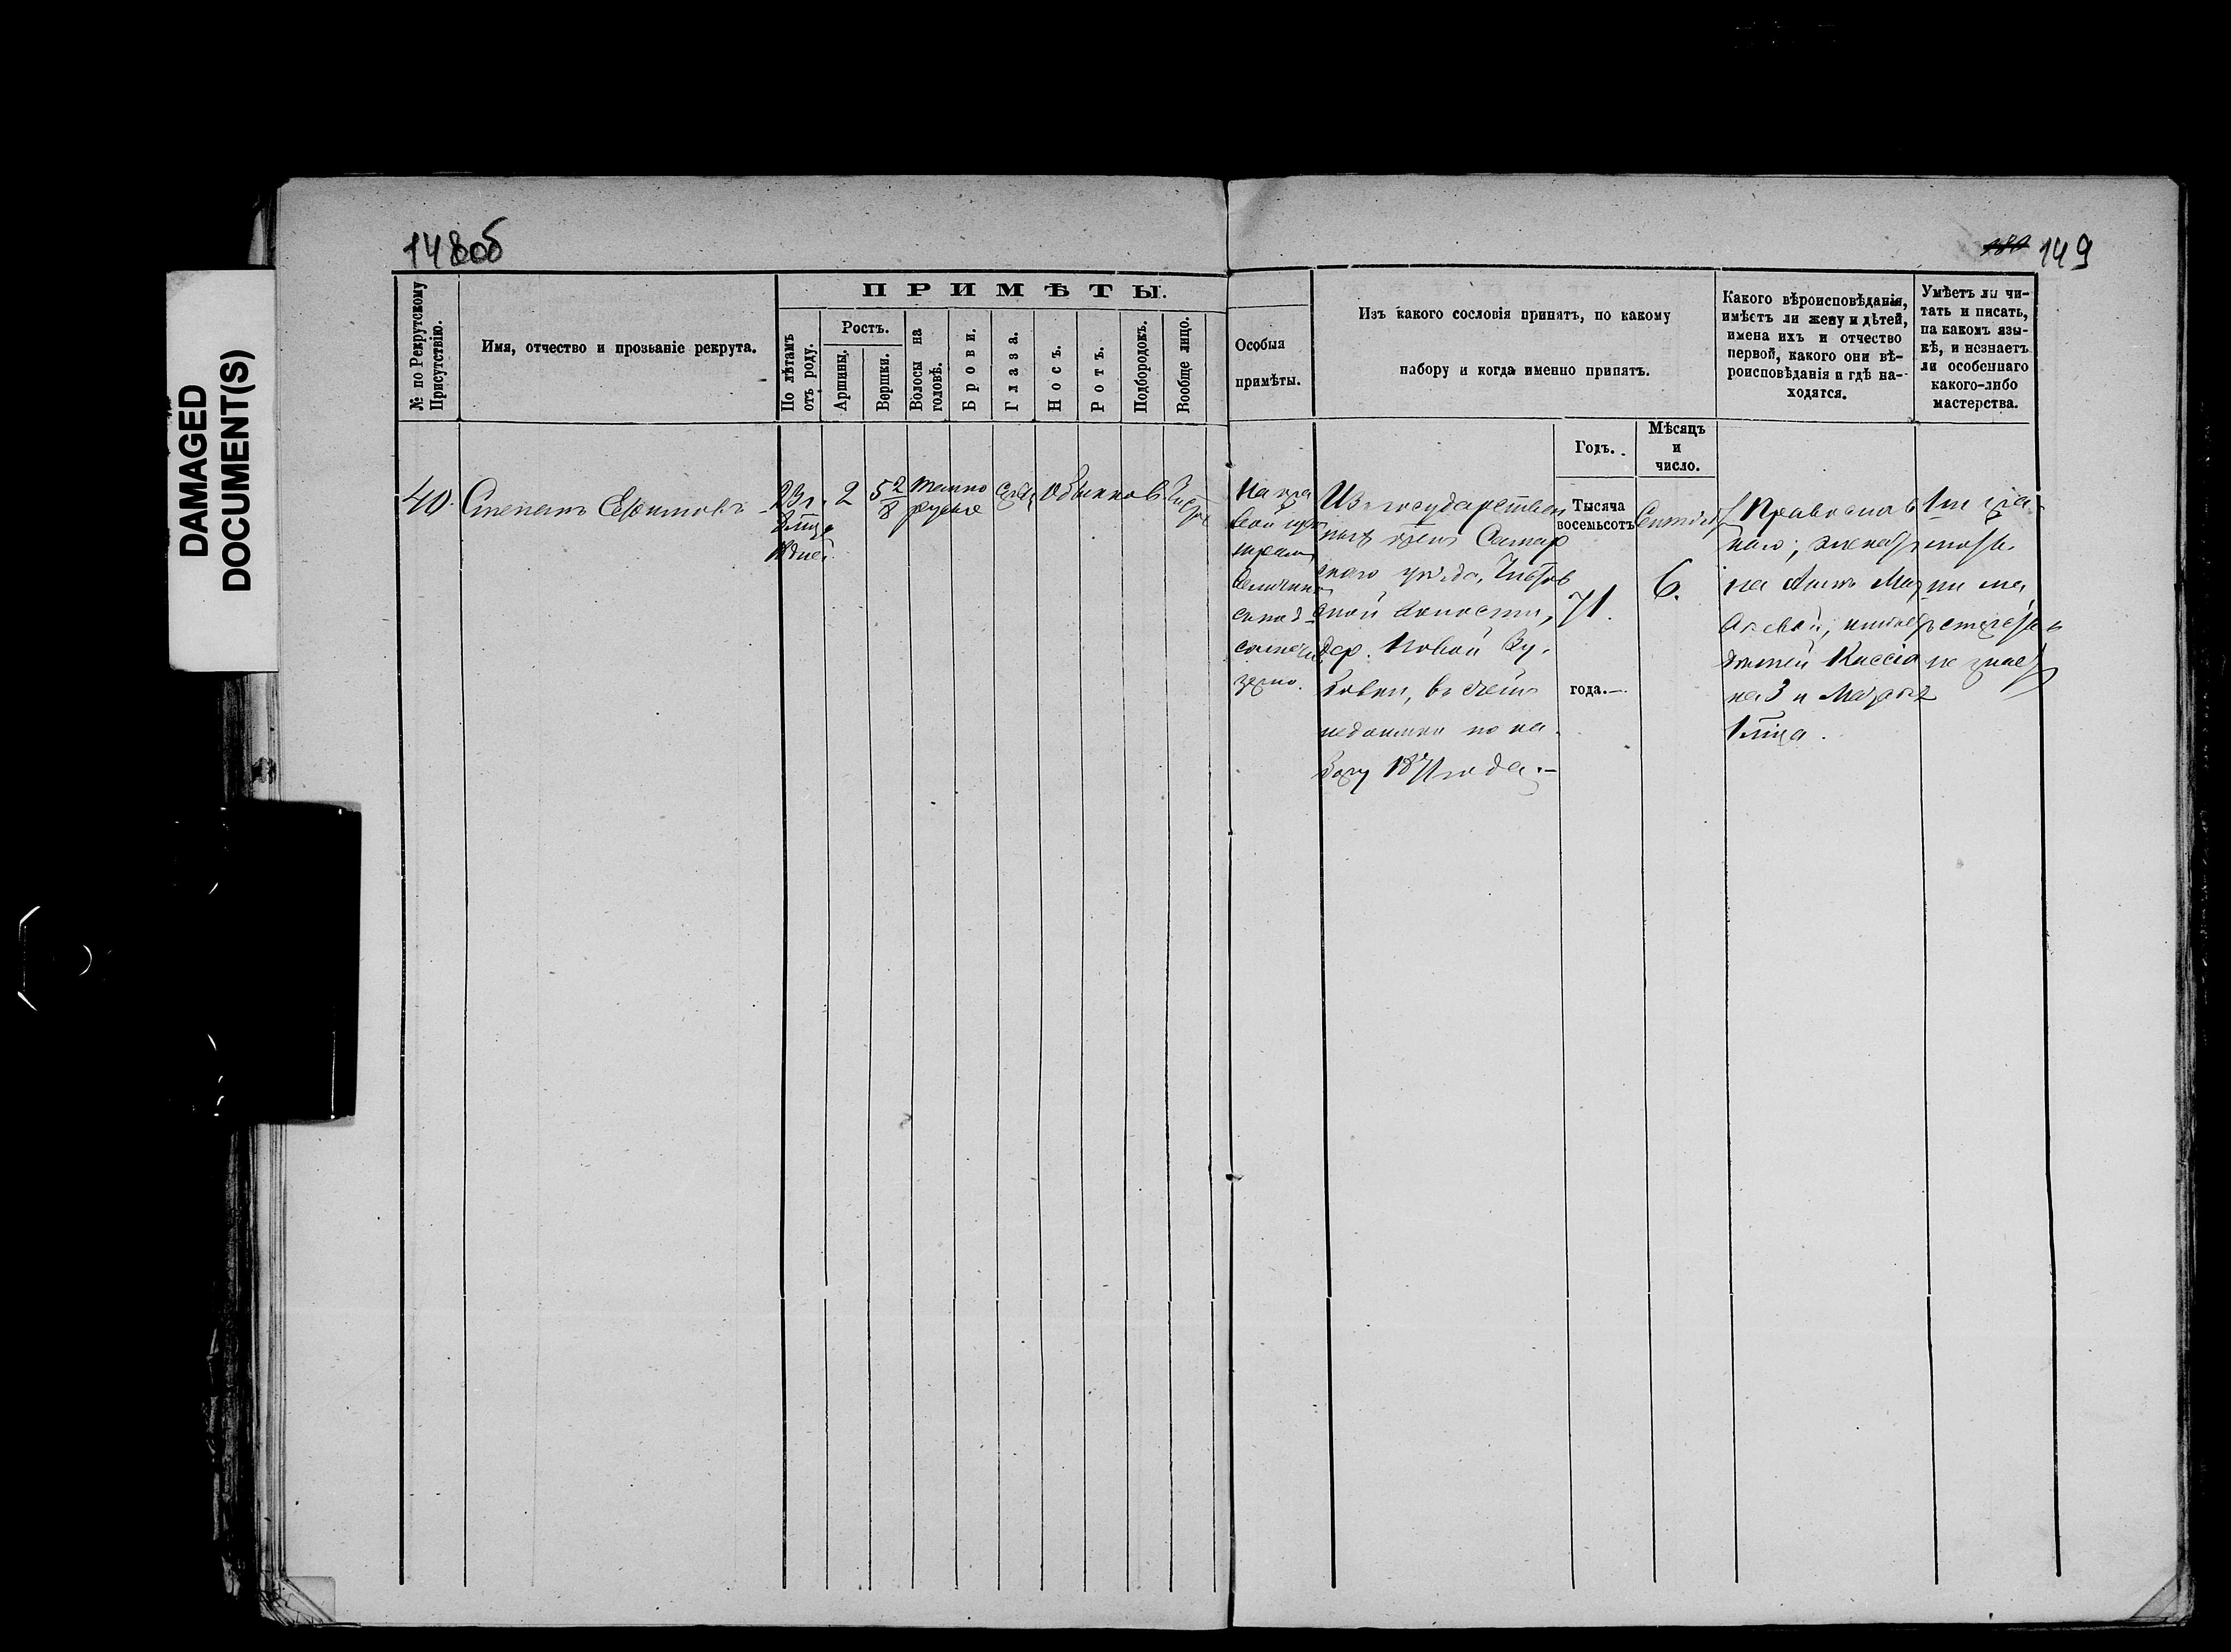 DAMAGED
DOCUMENT(S)
148об
149
№ по Рекрутскому
Присутствію.
Имя, отчество и прозваніе рекрута.
ПРИМѢТЫ.
По лѣтамъ
отъ роду.
Ростъ.
Аршины.
Вершки.
Волосы на
головѣ.
Брови.
Глаза.
Носъ.
Ротъ.
Подбородокъ.
Вообще лицо.
Особыя
примѣты.
Изъ какого сословія принятъ, по какому
набору и когда именно принятъ.
Годъ.
Мѣсяцъ
и
число.
Какого вѣроисповѣданія,
имѣетъ ли жену и дѣтей,
имена ихъ и отчество
первой, какого они вѣ-
роисповѣданія и гдѣ на-
ходятся.
Умѣетъ ли чи-
тать и писать,
на какомъ язы-
кѣ, и незнаетъ
ли особеннаго
какого-либо
мастерства.
40.
Степанъ Ефимовъ
23 г.
дней
2
5 2/8
темно
русые
Обыкнов.
Чистое
На пра
вой
величин
съ под
солнечн.
зерно.
Изъ государствен
ныхъ крест. Самар
скаго уѣзда,
ской волости,
дер. Новой
въ счетъ
недоимки по на
бору 1871 года.—
Тысяча
восемьсотъ
71.
года.—
Сентября
6.
Православ
наго; женатъ
на Аннѣ
имѣетъ
дѣтей
на 3 и
1 мца.
Ни гра
мотѣ
ни ма
стерства
не знаетъ